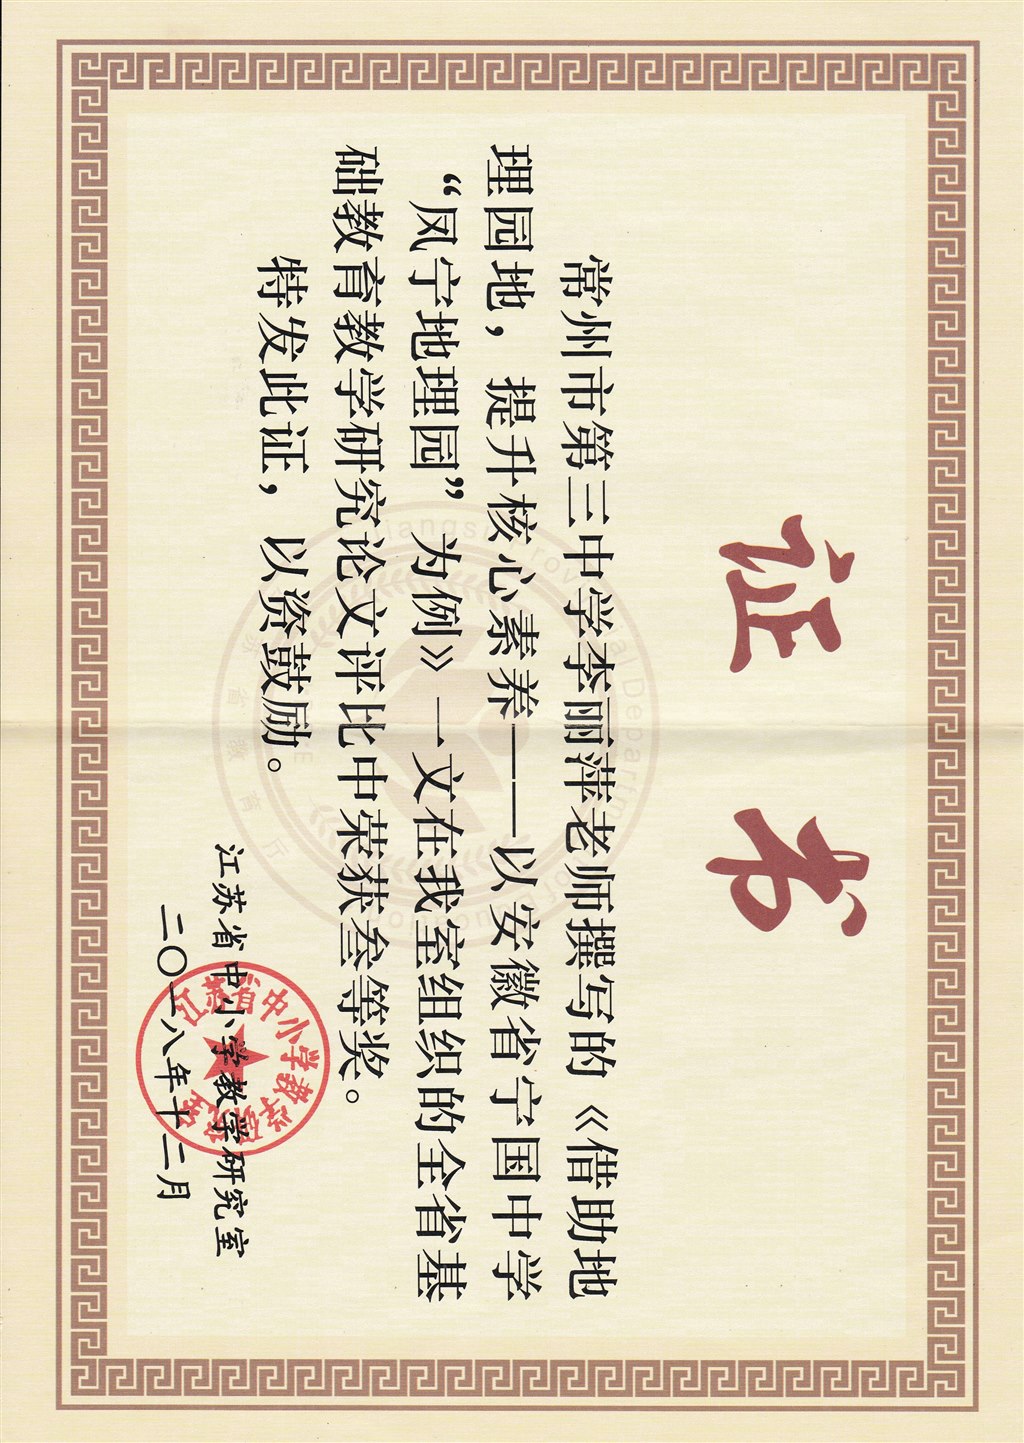 证书
常州市第三中学李丽萍老师撰写的《借助地
理园地，提升核心素养——以安徽省宁国中学
“凤宁地理园”为例》一文在我室组织的全省基
础教育教学研究论文评比中荣获叁等奖。
特发此证，以资鼓励。
江苏省中小学教学研究室
二〇一八年十二月
江苏省中小学教学研究室